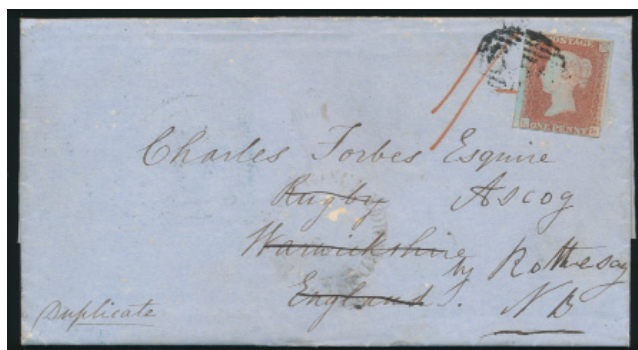 POSTAGE
ONE PENNY
Charles Forbes Esquire
Rugby Ascog
Warwickshire by Rothesay
England. NB
Duplicate